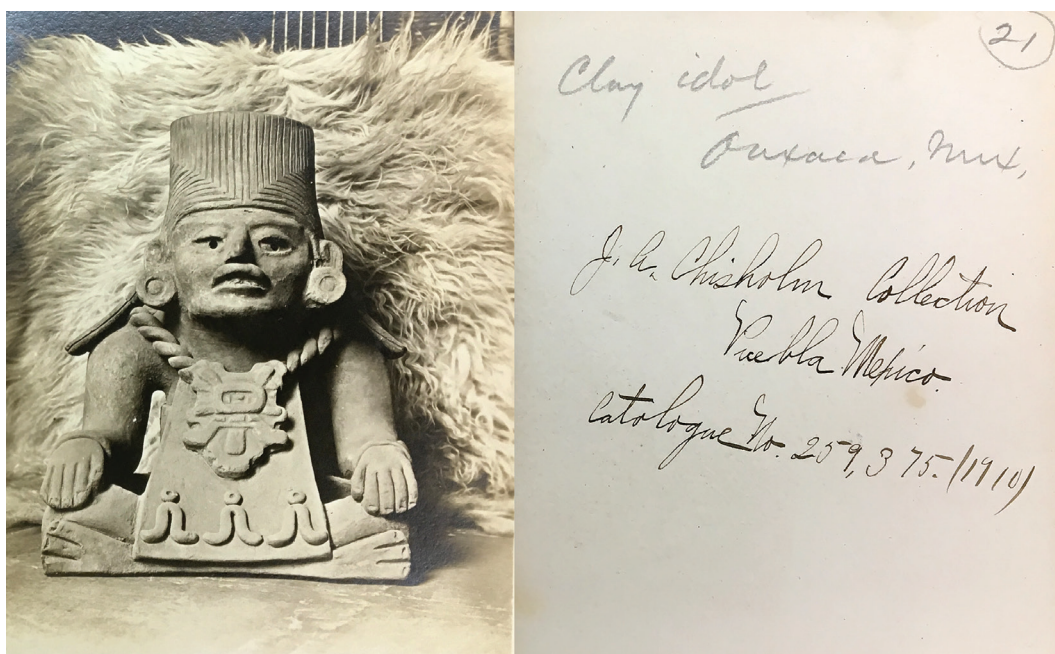 21
Clay idol
Oaxaca, Mex.
J. A. Chisholm Collection
Puebla Mexico.
Catalogue No. 259,375. (1910)